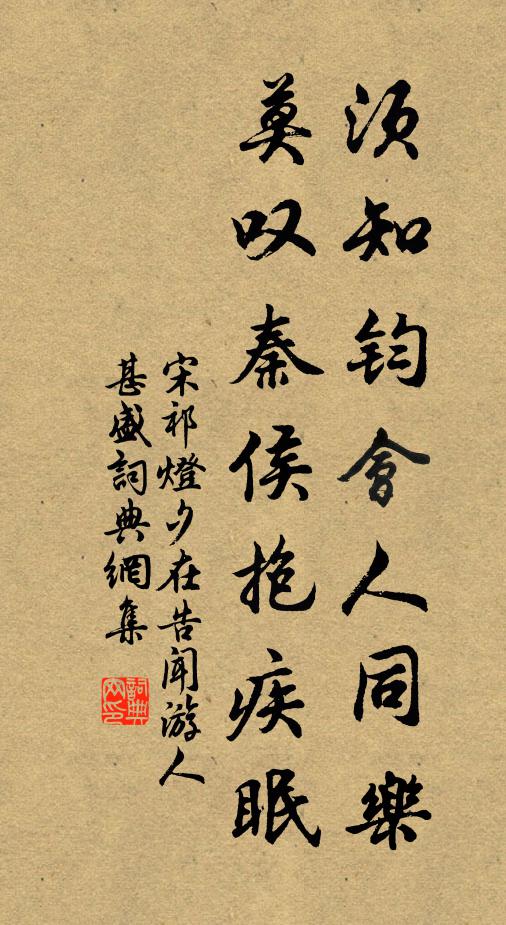 须知钧會人同樂
莫叹秦侯抱疾眠
宋祁燈夕在告闻游人
甚盛詞典網集
詞典
网印